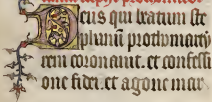 Deus qui beatum ste
phanum prothomarty
rem coronauit. et confessi
one fidei. et agone mar